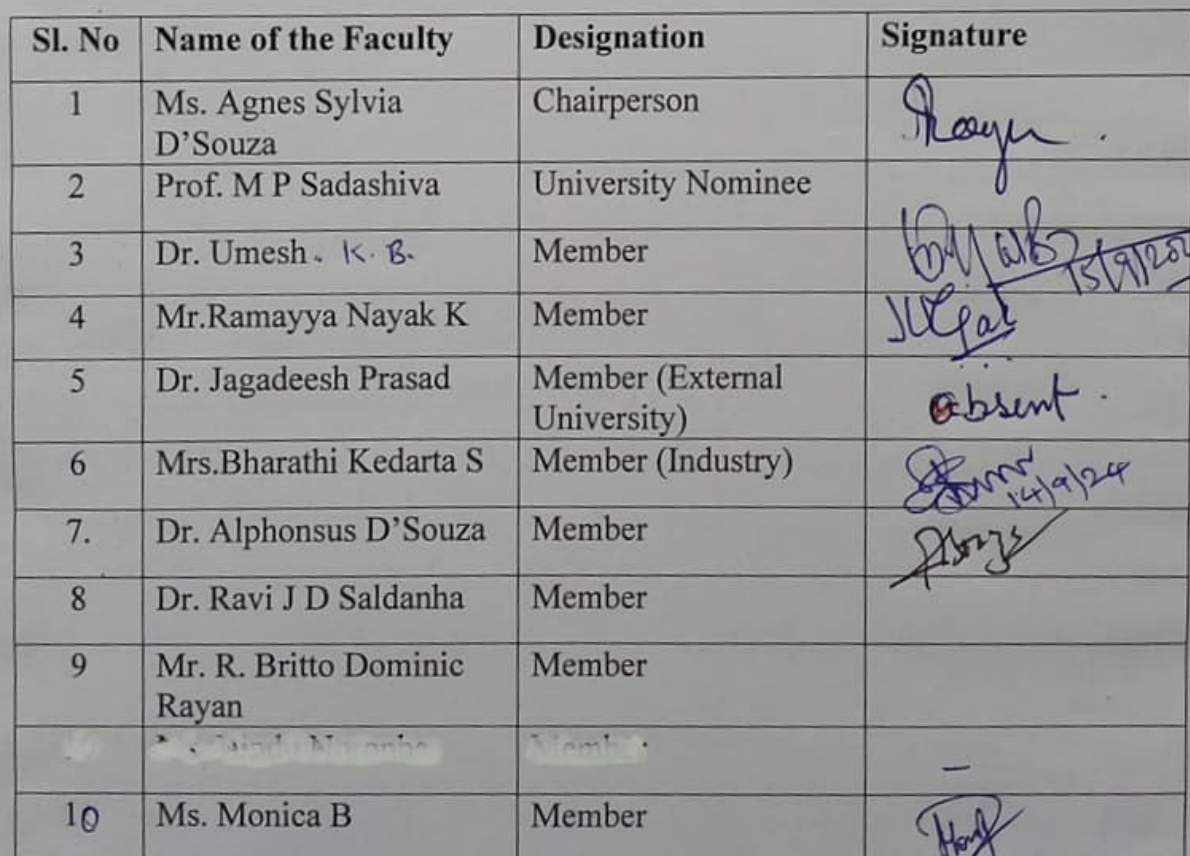 Sl. No Name of the Faculty Designation Signature
1 Ms. Agnes Sylvia Chairperson
D’Souza
2 Prof. M P Sadashiva University Nominee
3 Dr. Umesh. K. B. Member
15/9/202
4 Mr.Ramayya Nayak K Member
5 Dr. Jagadeesh Prasad Member (External absent.
University)
6 Mrs.Bharathi Kedarta S Member (Industry)
14/9/24
7. Dr. Alphonsus D’Souza Member
8 Dr. Ravi J D Saldanha Member
9 Mr. R. Britto Dominic Member
Rayan
–
10 Ms. Monica B Member